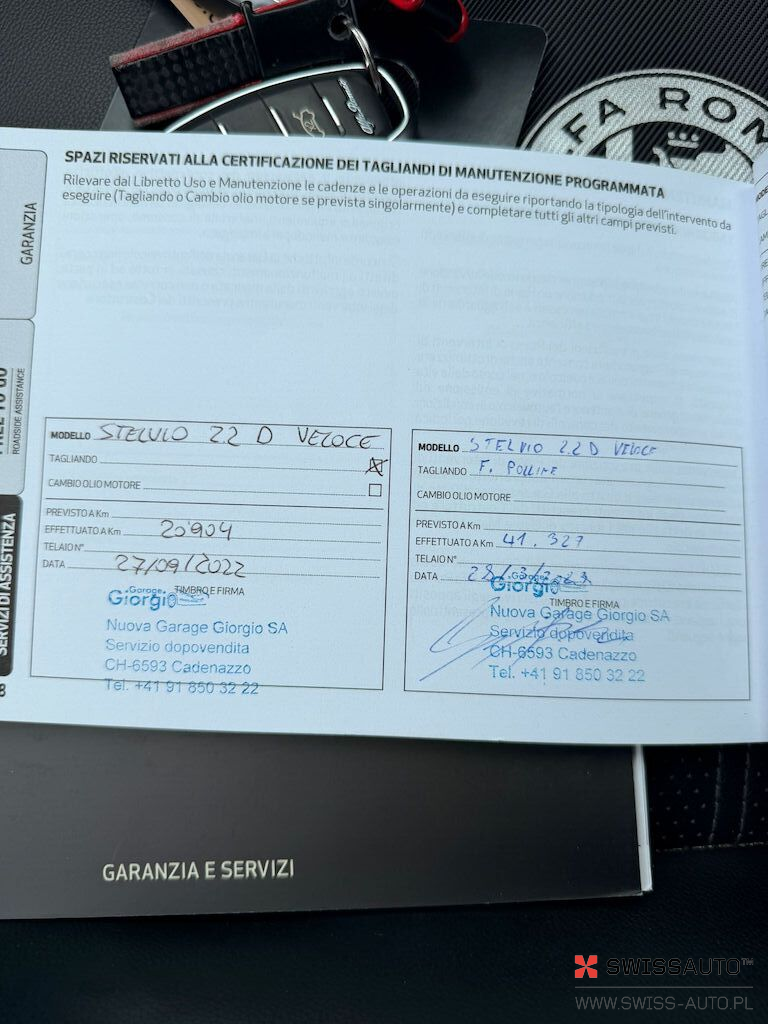 ALFA ROM
SPAZI RISERVATI ALLA CERTIFICAZIONE DEI TAGLIANDI DI MANUTENZIONE PROGRAMMATA
Rilevare dal Libretto Uso e Manutenzione le cadenze e le operazioni da eseguire riportando la tipologia dell'intervento da
eseguire (Tagliando o Cambio olio motore se prevista singolarmente) e completare tutti gli altri campi previsti.
GARANZIA
ROADSIDE ASSISTANCE
SERVIZI DI ASSISTENZA
8
MODELLO STELVIO 2.2 D VELOCE
TAGLIANDO
CAMBIO OLIO MOTORE
PREVISTO A Km
EFFETTUATO A Km 20'904
TELAIO N°
DATA 27/09/2022
TIMBRO E FIRMA
Garage
Giorgio
Nuova Garage Giorgio SA
Servizio dopovendita
CH-6593 Cadenazzo
Tel. +41 91 850 32 22
MODELLO STELVIO 2.2 D VELOCE
TAGLIANDO F. POLLINE
CAMBIO OLIO MOTORE
PREVISTO A Km
EFFETTUATO A Km 41.327
TELAIO N°
DATA
TIMBRO E FIRMA
Garage
Giorgio
Nuova Garage Giorgio SA
Servizio dopovendita
CH-6593 Cadenazzo
Tel. +41 91 850 32 22
GARANZIA E SERVIZI
SWISSAUTO™
WWW.SWISS-AUTO.PL